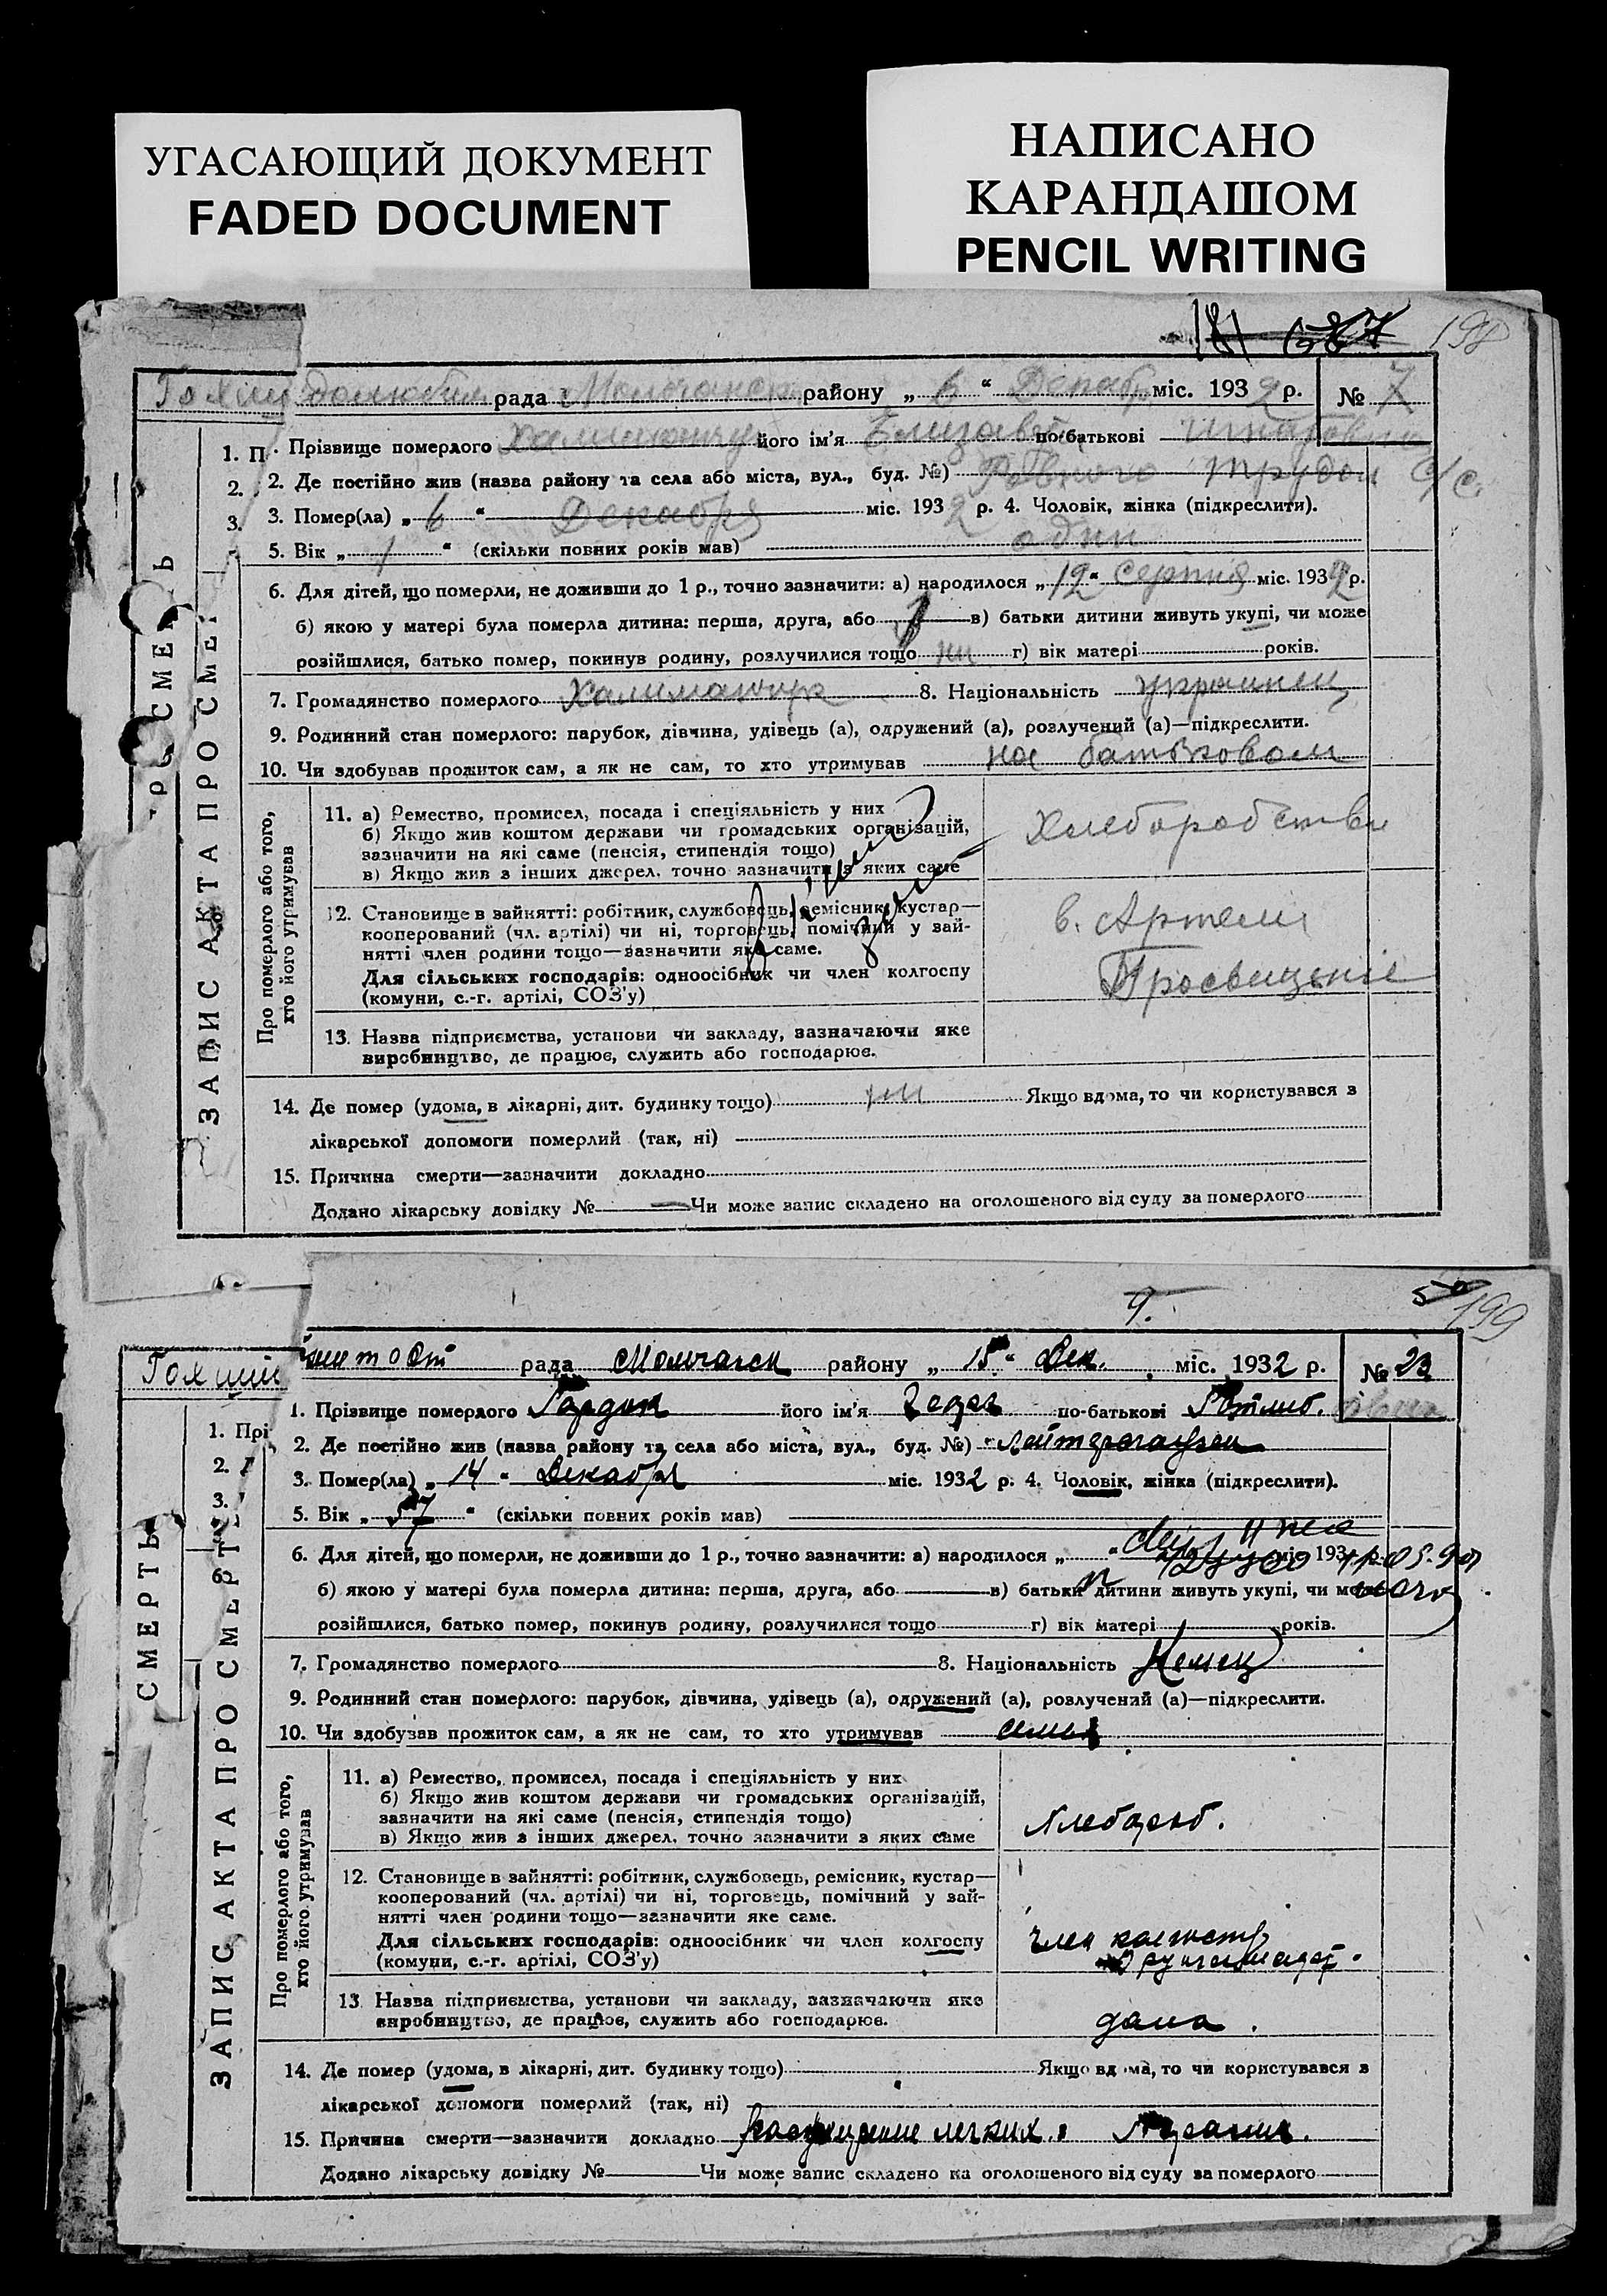 УГАСАЮЩИЙ ДОКУМЕНТ
FADED DOCUMENT
НАПИСАНО
КАРАНДАШОМ
PENCIL WRITING
198
рада район у „ 6 “ Декабр міс. 1932 р. № 7
1. П
1. Прізвище померлого його ім'я Елизавета по-батькові
2. 2. Де постійно жив (назва району та села або міста, вул., буд. №) трудом с/с.
3. 3. Помер(ла) „ 6 “ Декабря міс. 1932 р. 4. Чоловік, жінка (підкреслити).
5. Вік „ 1 “ (скільки повних років мав) один
6. Для дітей, що померли, не доживши до 1 р., точно зазначити: а) народилося „ 12 “ серпня міс. 193 р.
б) якою у матері була померла дитина: перша, друга, або в) батьки дитини живуть укупі, чи може
розійшлися, батько помер, покинув родину, розлучилися тощо ни г) вік матері років.
7. Громадянство померлого 8. Національність украинец
9. Родинний стан померлого: парубок, дівчина, удівець (а), одружений (а), розлучений (а)—підкреслити.
10. Чи здобував прожиток сам, а як не сам, то хто утримував
Про померлого або того,
хто його утримував
11. а) Ремество, промисел, посада і спеціяльність у них
б) Якщо жив коштом держави чи громадських організацій,
зазначити на які саме (пенсія, стипендія тощо)
в) Якщо жив з інших джерел, точно зазначити з яких саме
12. Становище в зайнятті: робітник, службовець, ремісник, кустар—
кооперований (чл. артілі) чи ні, торговець, помічний у зай-
нятті член родини тощо—зазначити яке саме.
Для сільських господарів: одноосібник чи член колгоспу
(комуни, с.-г. артілі, СОЗ'у)
в. Артели
13. Назва підприємства, установи чи закладу, зазначаючи яке
виробництво, де працює, служить або господарює.
14. Де помер (удома, в лікарні, дит. будинку тощо) Якщо вдома, то чи користувався з
лікарської допомоги померлий (так, ні)
15. Причина смерти—зазначити докладно
Додано лікарську довідку № Чи може запис складено на оголошеного від суду за померлого
ЗАПИС АКТА ПРО СМЕР
9.
199
рада Молочанск району „ 15 “ Дек. міс. 1932 р. № 23
1. Прі
1. Прізвище померлого його ім'я по-батькові Готлиб.
2. 2. Де постійно жив (назва району та села або міста, вул., буд. №)
3. 3. Помер(ла) „ 14 “ Декабря міс. 1932 р. 4. Чоловік, жінка (підкреслити).
5. Вік „ 57 “ (скільки повних років мав)
6. Для дітей, що померли, не доживши до 1 р., точно зазначити: а) народилося „ “ міс. 193 р.
б) якою у матері була померла дитина: перша, друга, або в) батьки дитини живуть укупі, чи може
розійшлися, батько помер, покинув родину, розлучилися тощо г) вік матері років.
7. Громадянство померлого 8. Національність Немец
9. Родинний стан померлого: парубок, дівчина, удівець (а), одружений (а), розлучений (а)—підкреслити.
10. Чи здобував прожиток сам, а як не сам, то хто утримував семья
Про померлого або того,
хто його утримував
11. а) Ремество, промисел, посада і спеціяльність у них
б) Якщо жив коштом держави чи громадських організацій,
зазначити на які саме (пенсія, стипендія тощо)
в) Якщо жив з інших джерел, точно зазначити з яких саме
Хлебороб.
12. Становище в зайнятті: робітник, службовець, ремісник, кустар—
кооперований (чл. артілі) чи ні, торговець, помічний у зай-
нятті член родини тощо—зазначити яке саме.
Для сільських господарів: одноосібник чи член колгоспу
(комуни, с.-г. артілі, СОЗ'у)
член
13. Назва підприємства, установи чи закладу, зазначаючи яке
виробництво, де працює, служить або господарює.
14. Де помер (удома, в лікарні, дит. будинку тощо) Якщо вдома, то чи користувався з
лікарської допомоги померлий (так, ні)
15. Причина смерти—зазначити докладно легких.
Додано лікарську довідку № Чи може запис складено на оголошеного від суду за померлого
СМЕРТЬ
ЗАПИС АКТА ПРО СМЕРТЬ